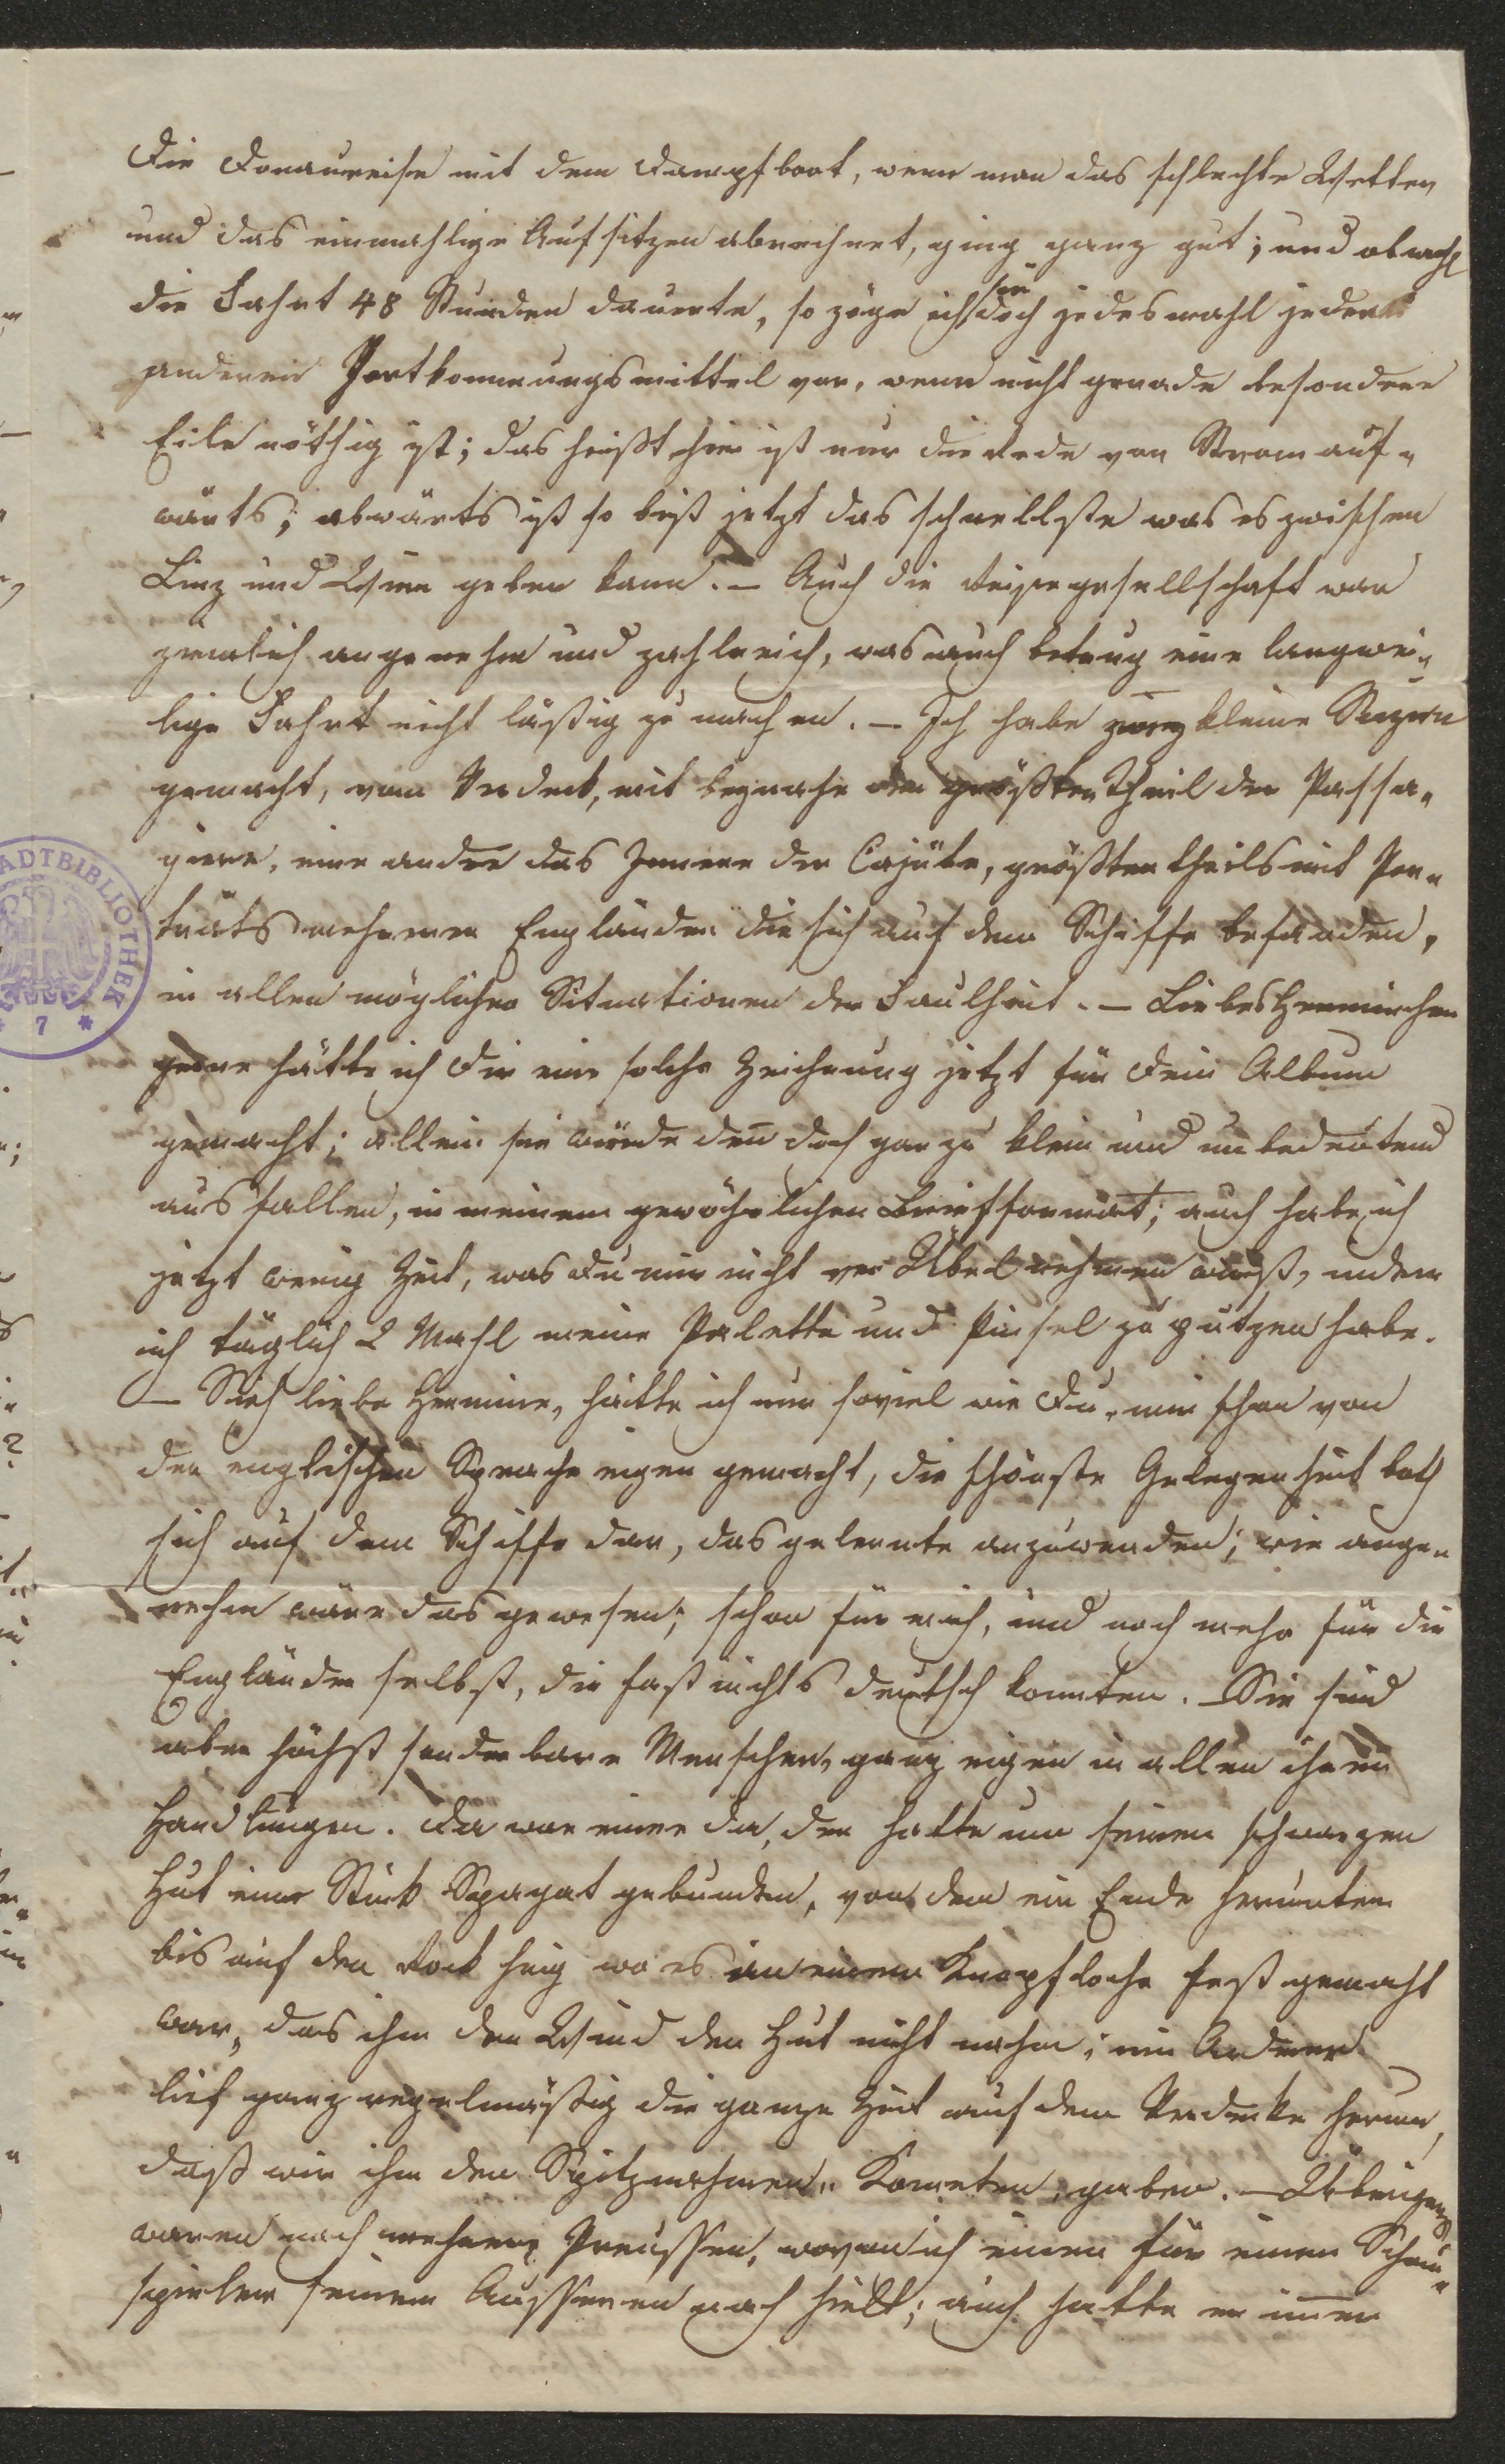 Die Donaureise mit dem Dampfboot, wenn man das schlechte Wetter
und das einmahlige Aufsitzen abrechnet, ging ganz gut; und obwohl
die Fahrt 48 Stunden dauerte, so zöge ich sie doch jedesmahl jedem
anderen Fortkommungsmittel vor, wenn nicht gerade besondere
Eile nöthig ist; das heißt hier ist nur die Rede von Stromauf-
wärts; abwärts ist so biß jetzt das schnellste was es zwischen
Linz und Wien geben kann. – Auch die Reisegesellschaft war
ziemlich angenehm und zahlreich, was auch betrug eine langwei-
lige Fahrt nicht läßig zu machen. – Ich habe zwey kleine Skizzen
gemacht, vom Verdeck, mit beynahe den größten Theil der Passa-
giere, eine andre das Innere der Cajüte, größtentheils mit Por-
träts mehrerer Engländer die sich auf dem Schiffe befanden,
in allen möglichen Situationen der Faulheit. – Liebes Herminchen
gerne hätte ich Dir eine solche Zeichnung jetzt für Dein Album
gemacht; allein sie würde den̄ doch gar zu klein und unbedeutend
ausfallen, in meinem gewöhnlichen Briefformat; auch habe ich
jetzt wenig Zeit, was Du mir nicht ver Übel nehmen mußt, indem
ich täglich 2 Mahl meine Palette und Pinsel zu putzen habe.
– Sieh liebe Hermine, hätte ich nur soviel wie Du, mir schon von
der englischen Sprache eigen gemacht, die schönste Gelegenheit both
sich auf dem Schiffe dar, das gelernte anzuwenden; wie ange-
nehm wäre das gewesen; schon für mich, und noch mehr für die
Engländer selbst, die fast nichts deutsch konnten. – Sie sind
aber höchst sonderbare Menschen, ganz eigen in allen ihren
Handlungen. Da war einer da, der hatte um seinen schwarzen
Hut eine Stück Spagat gebunden, von dem ein Ende herunter
bis auf den Rock hing wo es an einem Knopfloche fest gemacht
war, das ihm der Wind den Hut nicht nahm; ein Anderer
lief ganz regelmäßig die ganze Zeit auf dem Verdecke herum,
daß wir ihm den Spitznahmen „Kometen„ gaben. – Übrigens
waren noch mehrere Preussen, wovon ich einen für einen Schau-
spieler seinem Aussseren nach hielt; auch hatte er im̄er
STADTBIBLIOTHEK
* 7 *